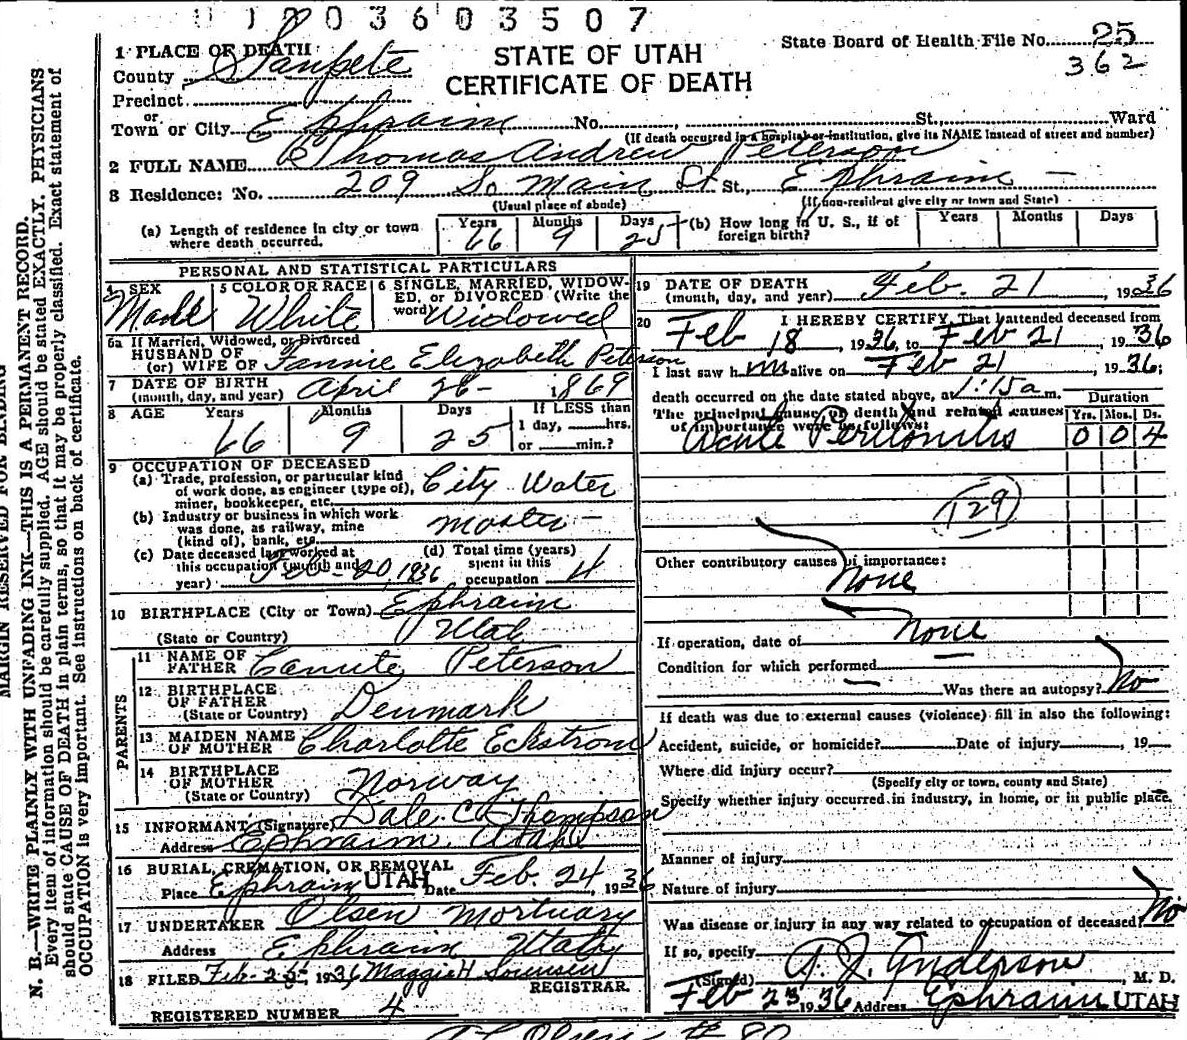 0 3 6 0 3 5 0 7
1 PLACE OF DEATH
County Sanpete
Precinct
or
Town or City Ephraim No. , St., Ward
(If death occurred in a hospital or institution, give its NAME instead of street and number)
STATE OF UTAH
CERTIFICATE OF DEATH
State Board of Health File No. 25
362
2 FULL NAME Thomas Andrew Peterson
3 Residence: No. 209 So Main St St., Ephraim -
(Usual place of abode) (If non-resident give city or town and State)
(a) Length of residence in city or town where death occurred. Years 66 Months 9 Days 25
(b) How long in U. S., if of foreign birth? Years Months Days
PERSONAL AND STATISTICAL PARTICULARS
4 SEX Male
5 COLOR OR RACE White
6 SINGLE, MARRIED, WIDOWED, or DIVORCED (Write the word) Widowed
6a If Married, Widowed, or Divorced
HUSBAND OF
(or) WIFE OF Fannie Elizabeth Peterson
7 DATE OF BIRTH
(month, day, and year) April 26- 1869
8 AGE Years 66 Months 9 Days 25 If LESS than 1 day, hrs. or min.?
9 OCCUPATION OF DECEASED
(a) Trade, profession, or particular kind of work done, as engineer (type of), miner, bookkeeper, etc. City Water
(b) Industry or business in which work was done, as railway, mine (kind of), bank, etc. master -
(c) Date deceased last worked at this occupation (month and year) Feb-20, 1936
(d) Total time (years) spent in this occupation 4
10 BIRTHPLACE (City or Town) Ephraim
(State or Country) Utah
PARENTS
11 NAME OF FATHER Canute Peterson
12 BIRTHPLACE OF FATHER
(State or Country) Denmark
13 MAIDEN NAME OF MOTHER Charlotte Eckstrom
14 BIRTHPLACE OF MOTHER
(State or Country) Norway
15 INFORMANT (Signature) Dale C. Thompson
Address Ephraim Utah
16 BURIAL, CREMATION, OR REMOVAL
Place Ephraim UTAH Date Feb. 24, 1936
17 UNDERTAKER Olsen Mortuary
Address Ephraim Utah
18 FILED Feb- 1936 Maggie H Sorensen
REGISTRAR.
REGISTERED NUMBER 4
19 DATE OF DEATH
(month, day, and year) Feb. 21, 1936
20 I HEREBY CERTIFY, That I attended deceased from
Feb 18, 1936, to Feb 21, 1936
I last saw him alive on Feb 21, 1936;
death occurred on the date stated above, at 1:15a m.
The principal cause of death and related causes of importance were as follows:
Duration
Yrs. Mos. Ds.
Acute Peritonitis 0 0 4
129
Other contributory causes of importance:
None
If operation, date of none
Condition for which performed —
Was there an autopsy? No
If death was due to external causes (violence) fill in also the following:
Accident, suicide, or homicide? Date of injury , 19
Where did injury occur?
(Specify city or town, county and State)
Specify whether injury occurred in industry, in home, or in public place.
Manner of injury
Nature of injury
Was disease or injury in any way related to occupation of deceased? No
If so, specify
(Signed) A. J. Anderson, M. D.
Feb 23 1936 Address Ephraim UTAH
MARGIN RESERVED FOR BINDING
N. B.—WRITE PLAINLY WITH UNFADING INK—THIS IS A PERMANENT RECORD.
Every item of information should be carefully supplied. AGE should be stated EXACTLY. PHYSICIANS
should state CAUSE OF DEATH in plain terms, so that it may be properly classified. Exact statement of
OCCUPATION is very important. See instructions on back of certificate.
Olsen # 80